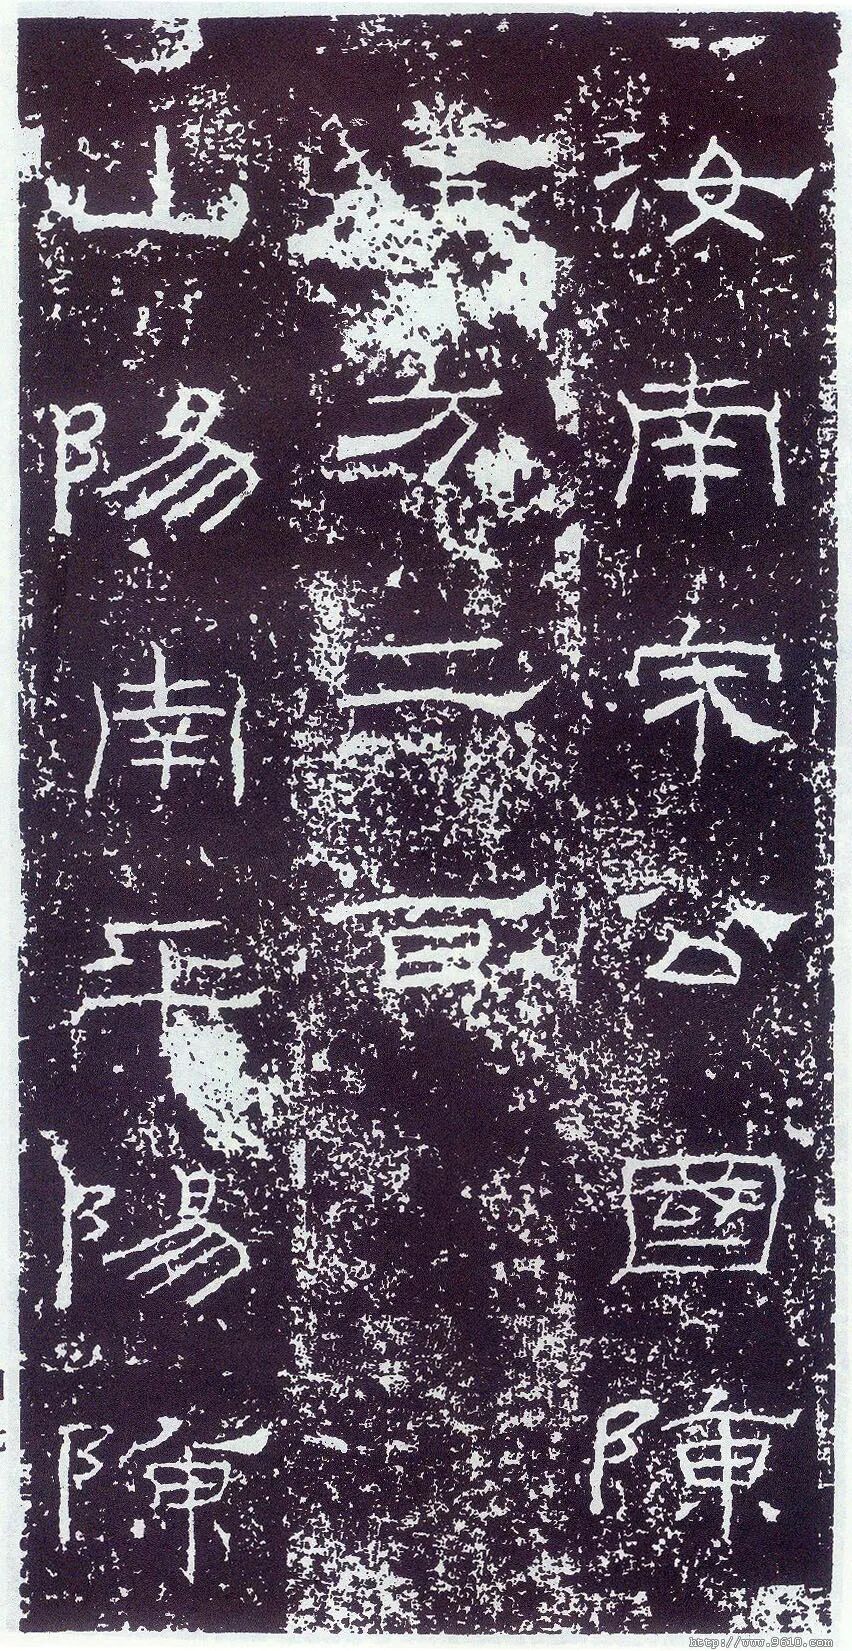 汝南宋公國陳
方二百
山陽南平陽陳
http://www.9610.com